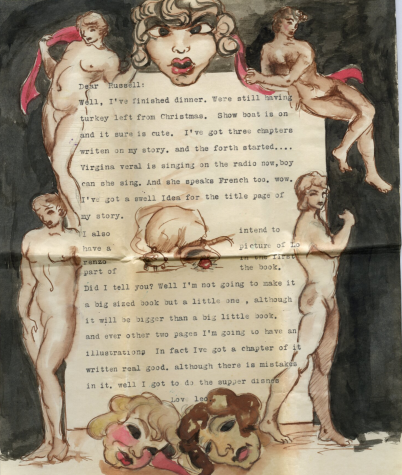 Dear Russell:
Well, I've finished dinner. Were still having
turkey left from Christmas. Show boat is on
and it sure is cute. I've got three chapters
writen on my story, and the forth started....
Virgina veral is singing on the radio now,boy
can she sing. And she speaks French too, wow.
I've got a swell Idea for the title page of
my story.
I also intend to
have a picture of Lo
renzo in the first
part of the book.
Did I tell you? Well I'm not going to make it
a big sized book but a little one , although
it will be bigger than a big little book.
and ever other two pages I'm going to have an
illustration; In fact Ivg got a chapter of it
written real good. although there is mistakes
in it. well I got to do the supper dishes
Love led